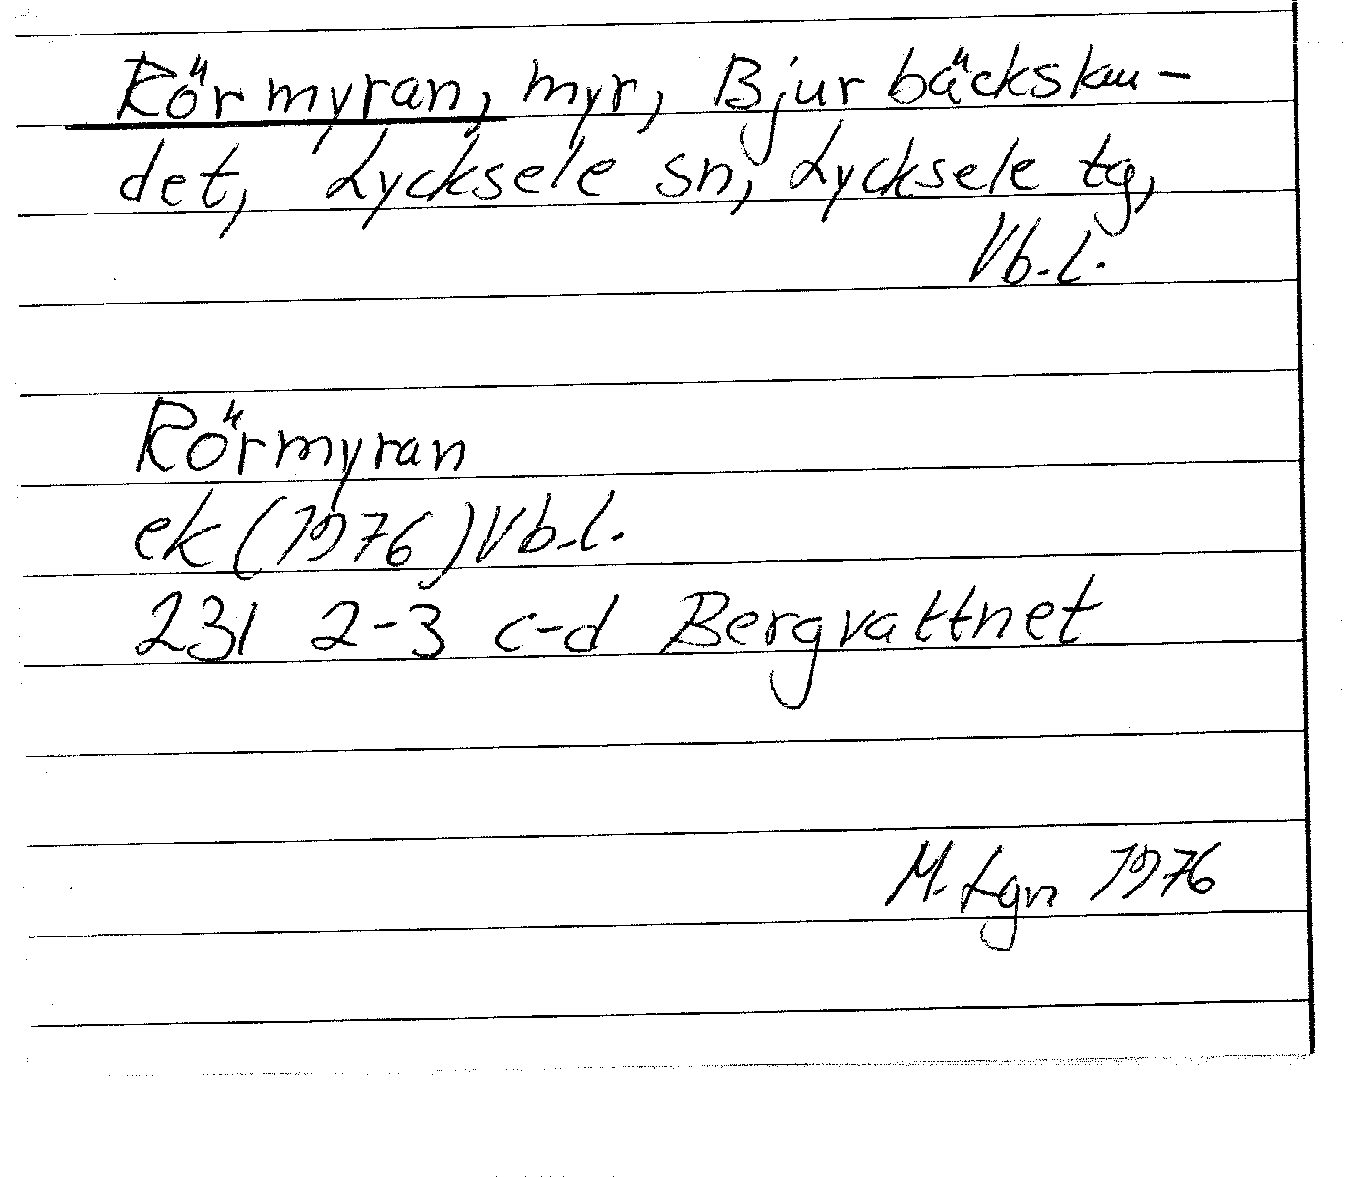 Rörmyran, myr, Bjurbäckskau-
det, Lycksele sn, Lycksele tg,
Vb.l.
Rörmyran
ek (1976) Vb.l.
231 2-3 c-d Bergvattnet
M. Lgn 1976